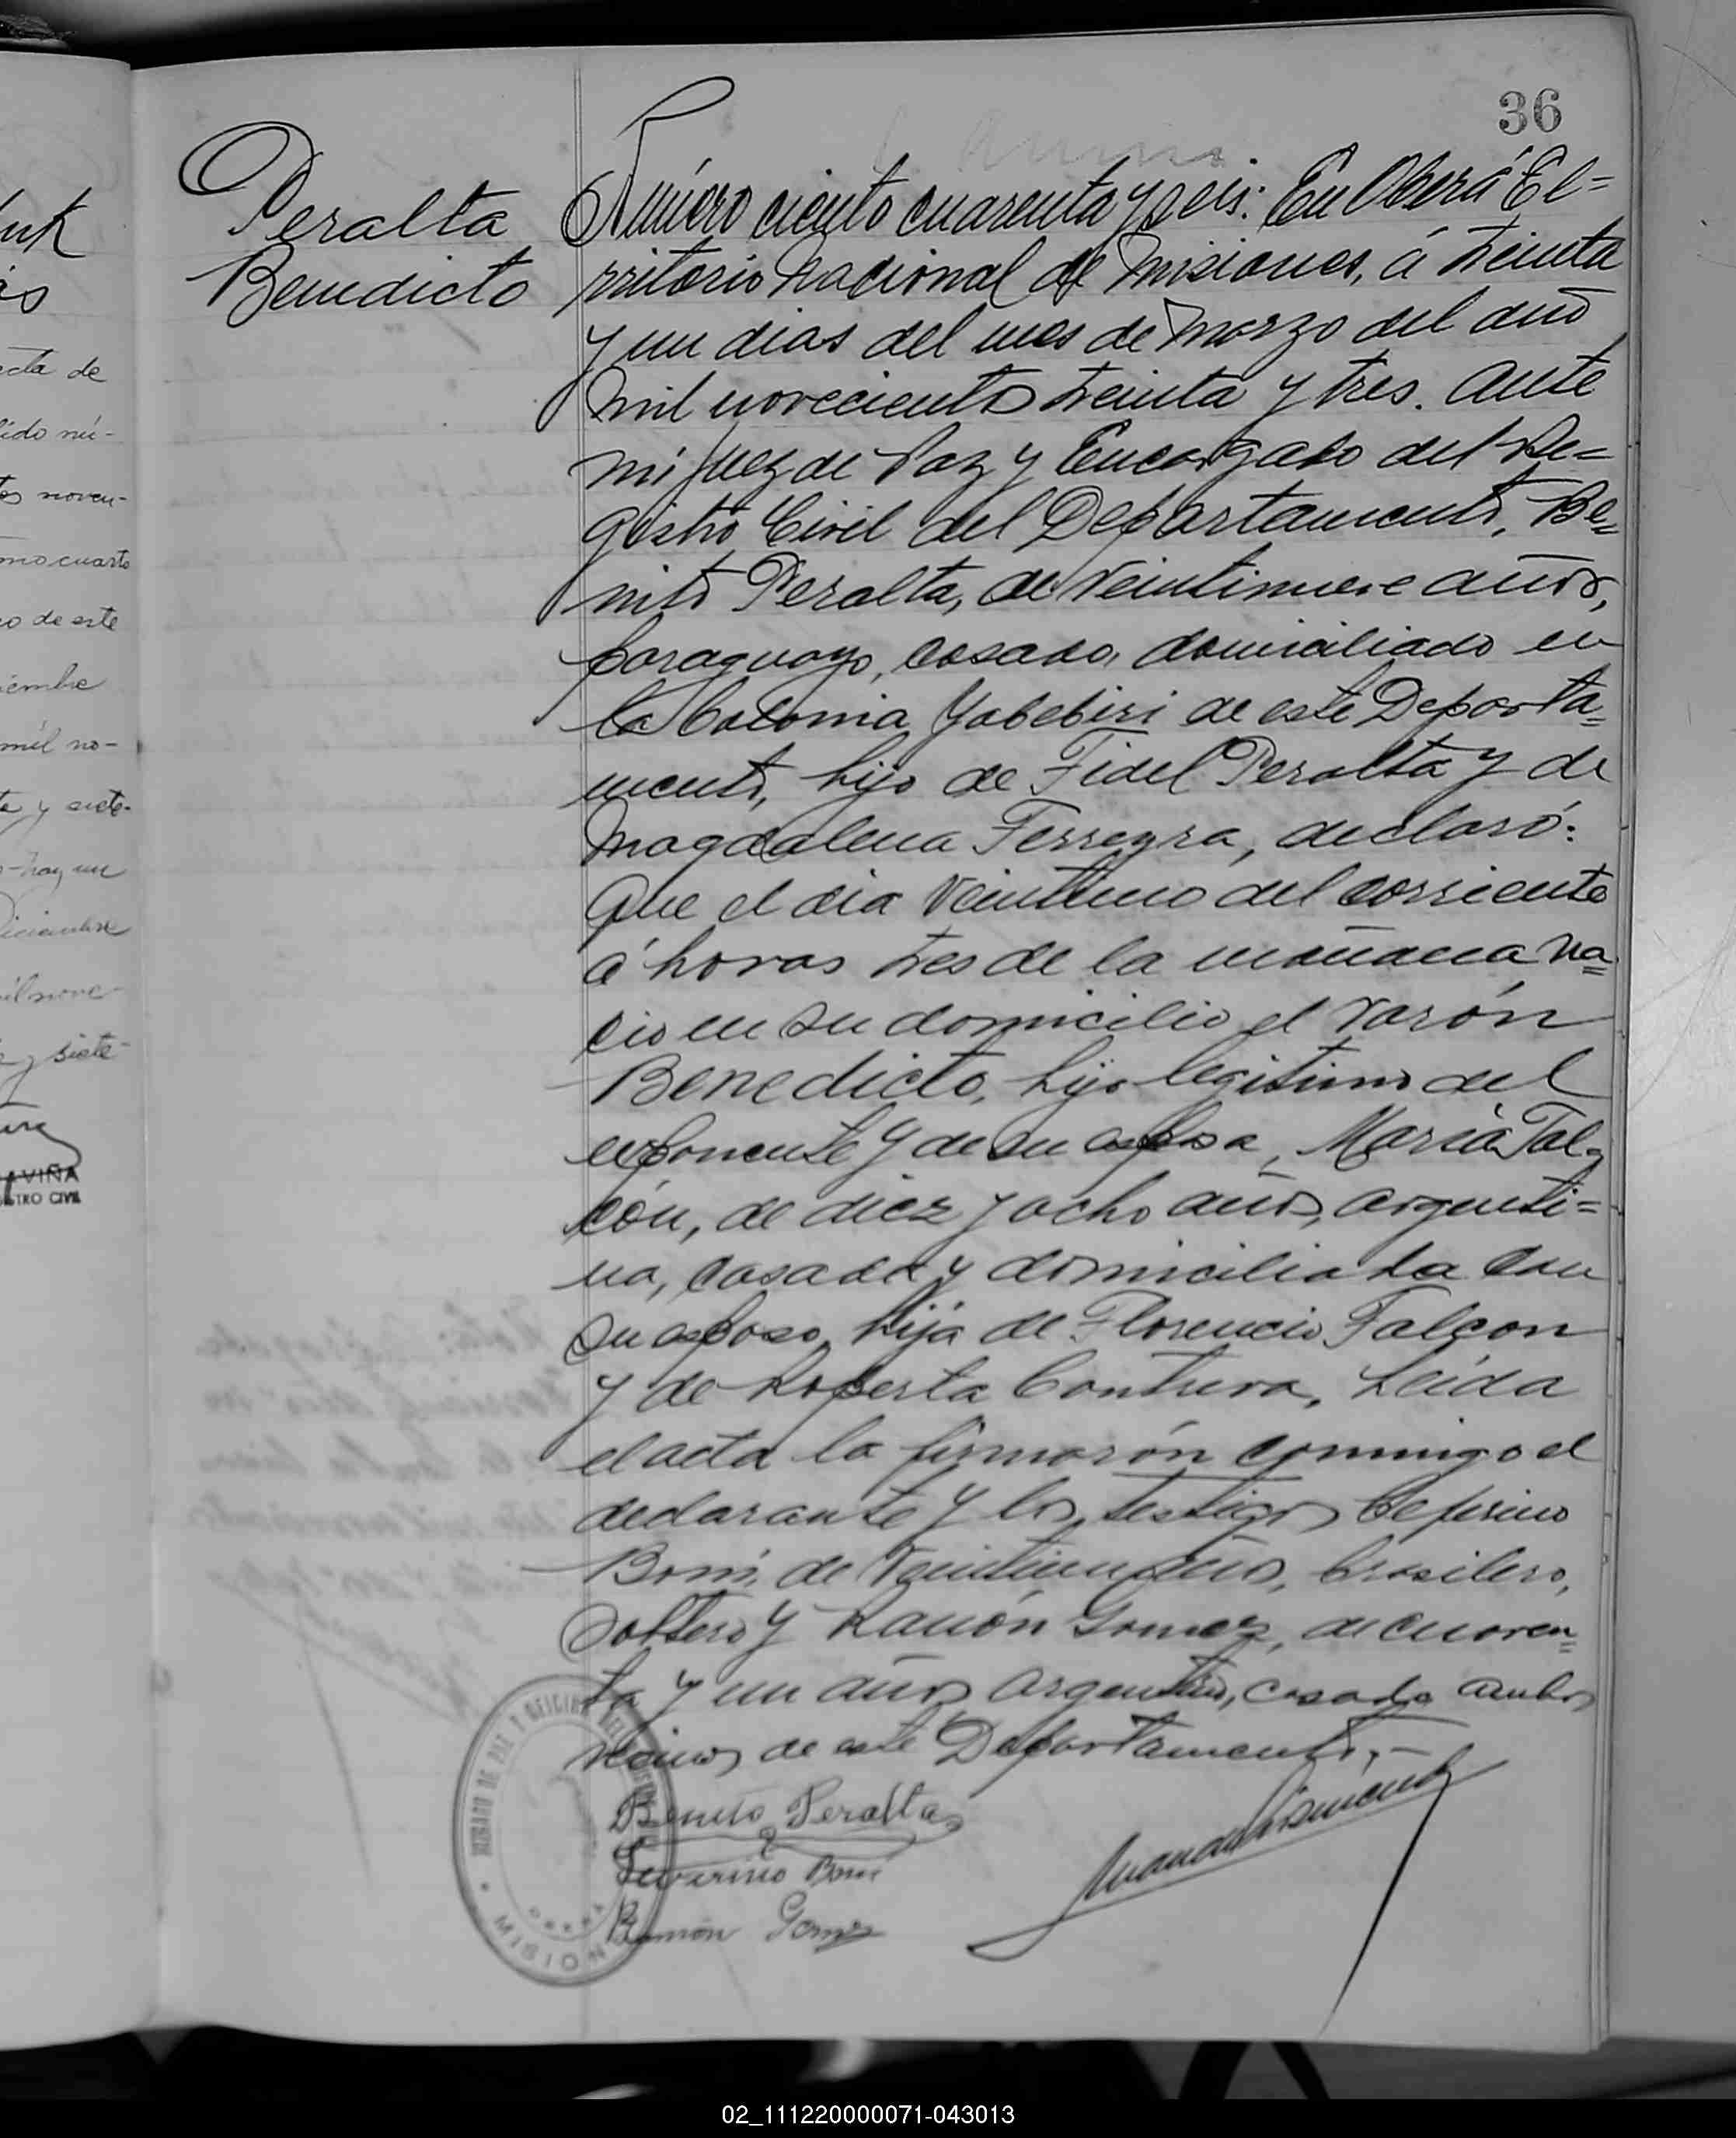 36
Peralta
Benedicto
Número ciento cuarenta y seis: En Oberá Te=
rritorio Nacional de Misiones, á treinta
y un dias del mes de Marzo del año
mil novecientos treinta y tres. Ante
mi Juez de Paz y Encargado del Re=
gistro Civil del Departamento, Be=
nito Peralta, de veintinueve años,
paraguayo, casado, domiciliado en
la Colonia Yabebiri de este Departa=
mento, hijo de Fidel Peralta y de
Magdalena Ferreyra, declaró:
Que el dia veintiuno del corriente
á horas tres de la mañana na=
cio en su domicilio el varón
Benedicto, hijo legitimo del
exponente y de su esposa, María Fal=
cón, de diez y ocho años, argenti=
na, casada y domiciliada con
su esposo, hija de Florencio Falcon
y de Roperta Contrera, Leida
el acta la firmarón conmigo el
declarante y los testigos Ceferino
Boni, de veintiun años, brasilero,
soltero y Ramón Gomez, de cuaren=
ta y un años argentino, casado ambos
vecinos de este Departamento,-
Benito Peralta
Severino Boni
Ramón Gomez
MISIONES
uk
os
cta de
ido nú-
tos noven-
mo cuarto
o de este
iembre
mil no-
te y siete-
-hay un
Diciembre
il nove
e y siete-
AVIÑA
STRO CIVIL
02_111220000071-043013